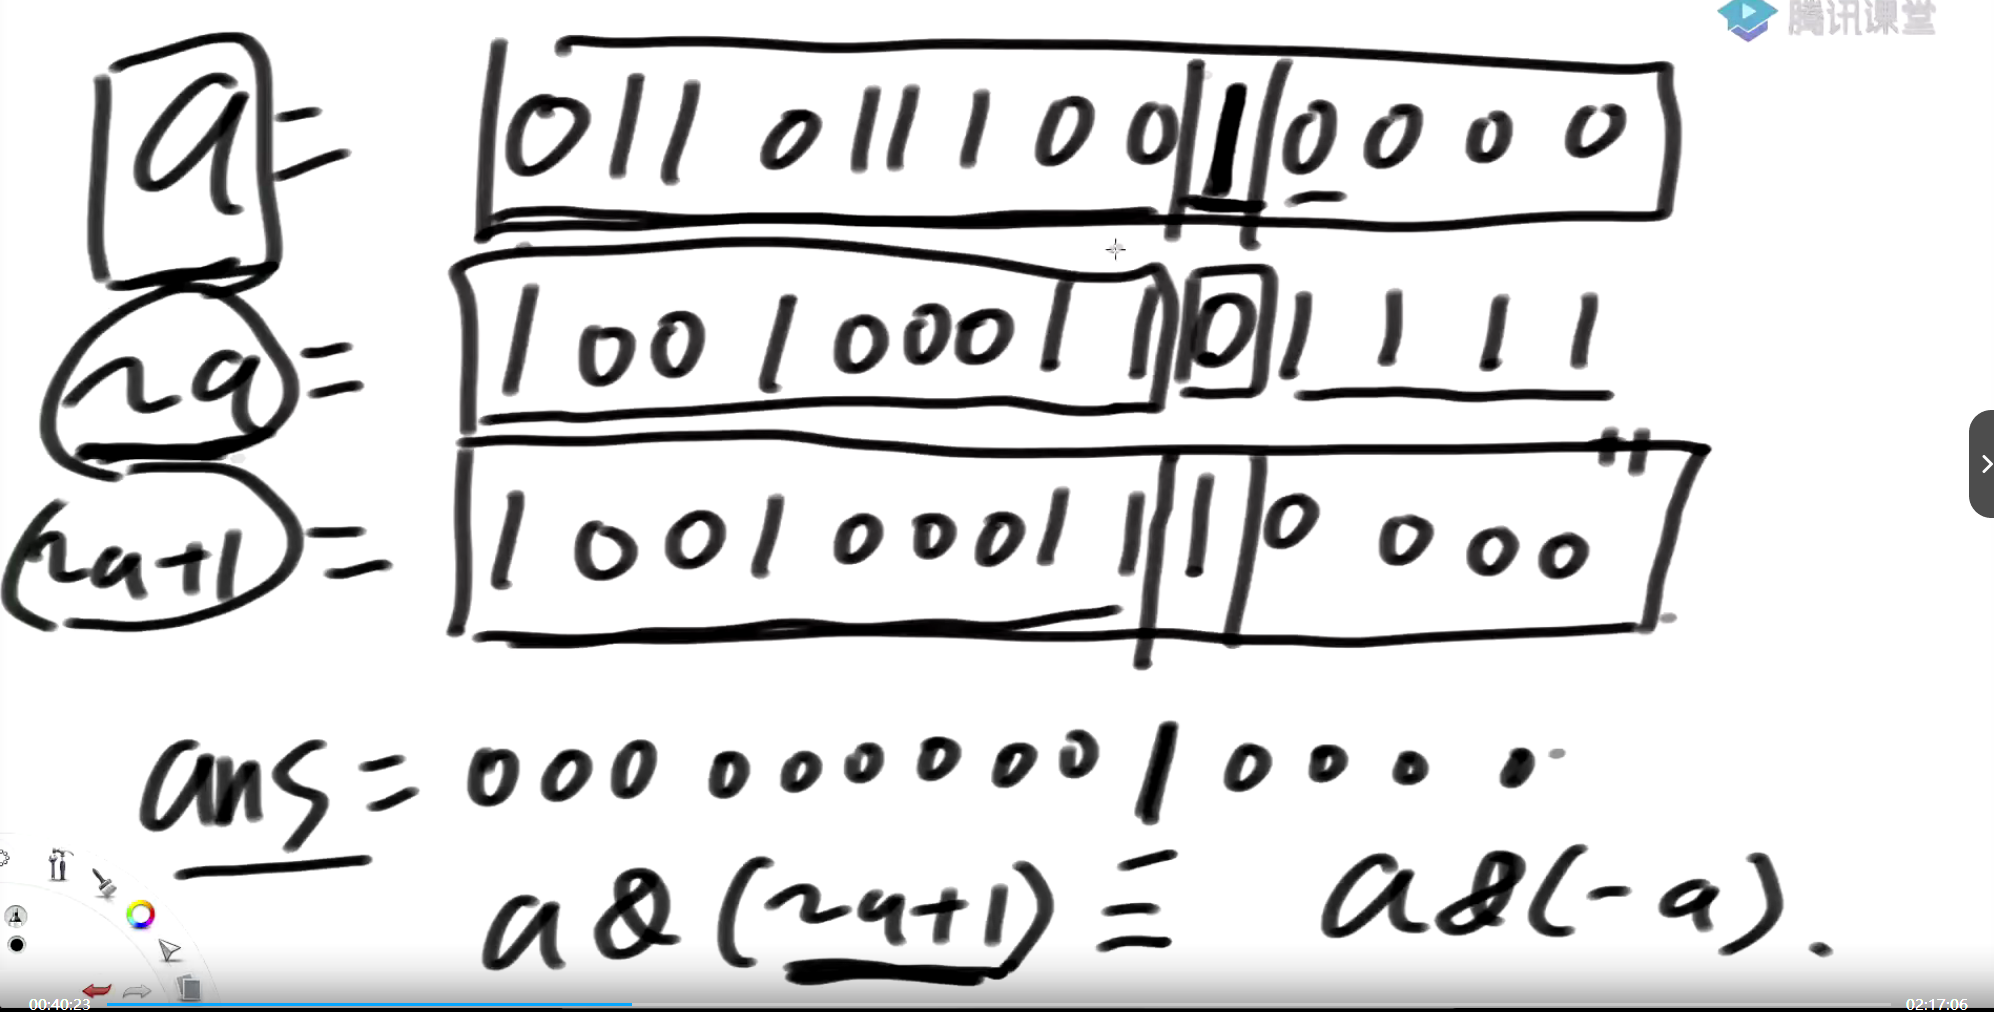 腾讯课堂
a = 0110111001 0000
~a = 1001000110 1111
(~a+1) = 1001000111 0000
ans = 00000000010000
a & (~a+1) ≡ a & (-a).
00:40:23 02:17:06